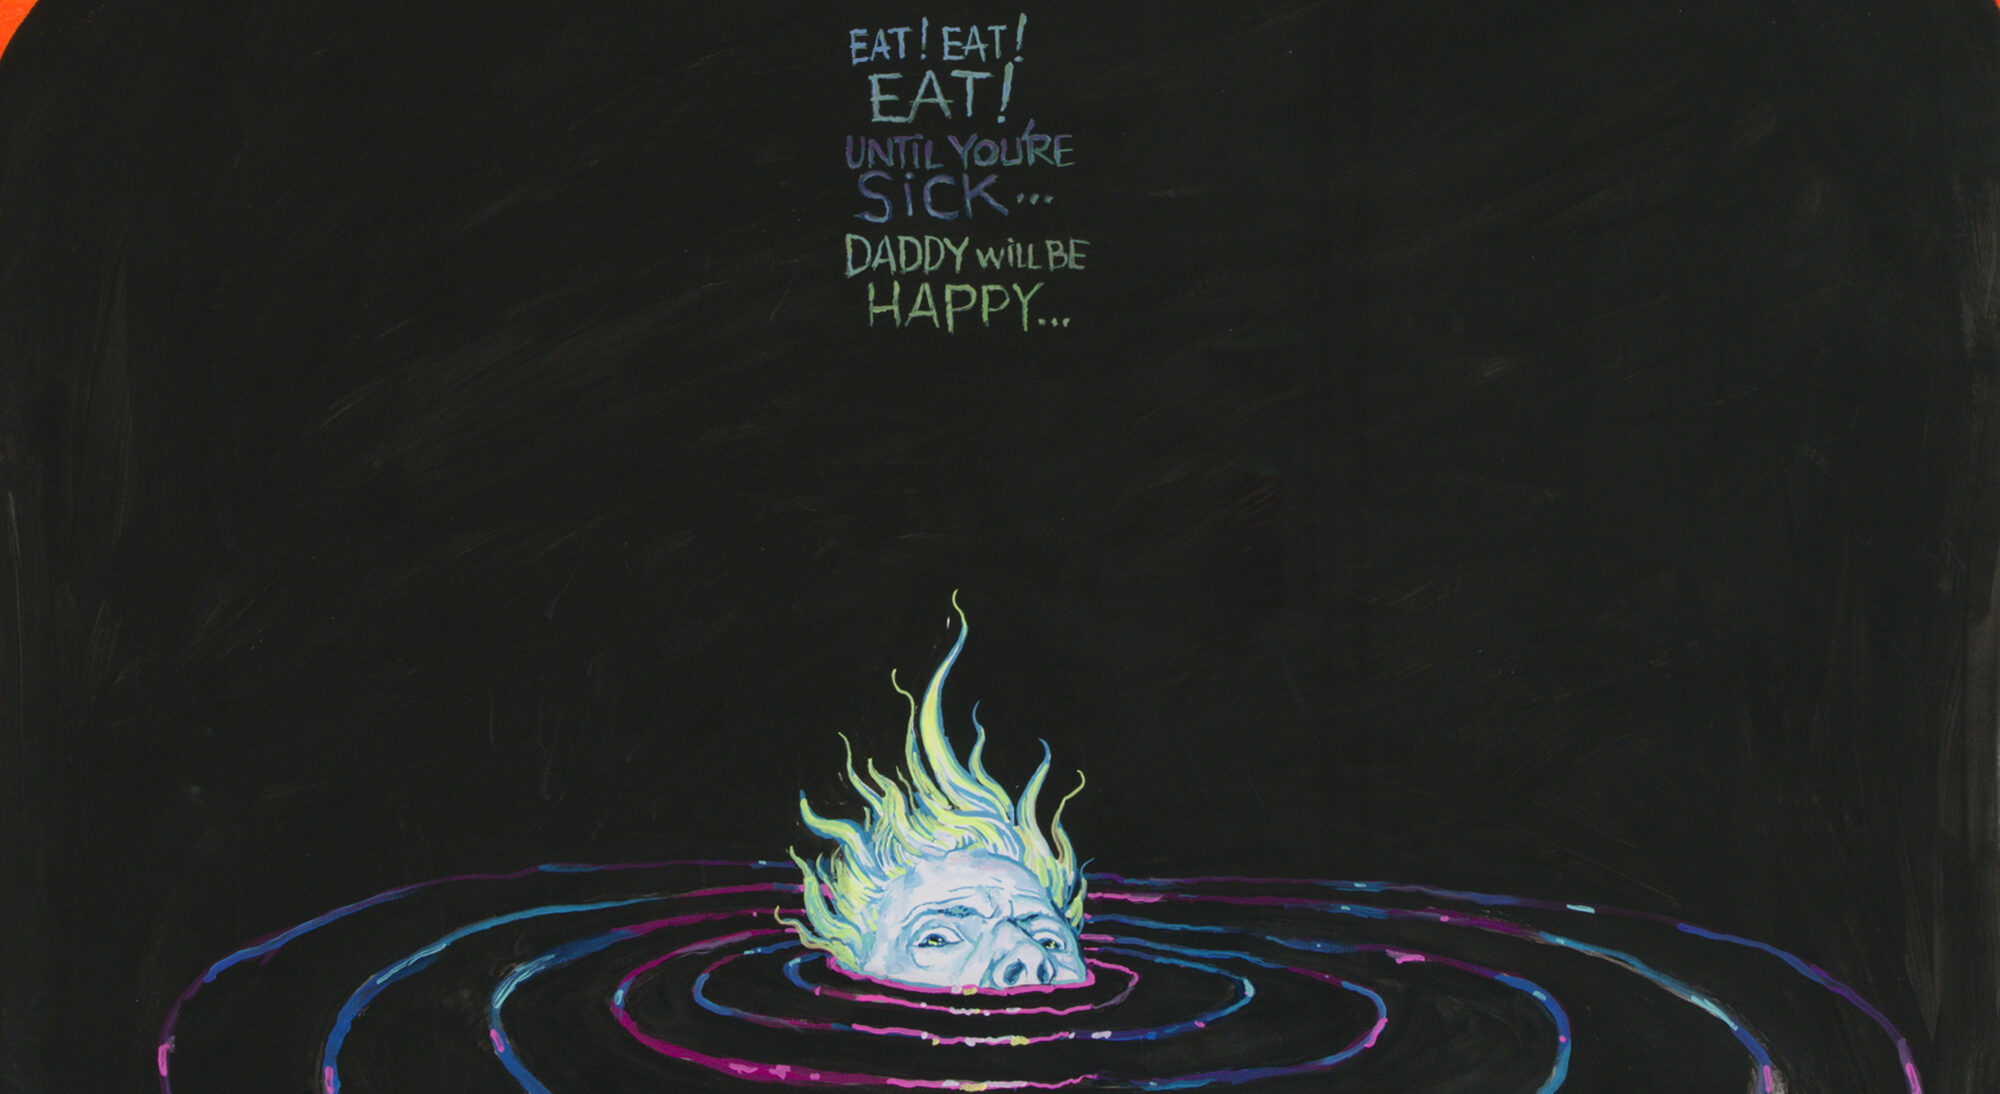 EAT! EAT!
EAT!
UNTiL YOU'RE
SiCK...
DADDY WiLL BE
HAPPY...